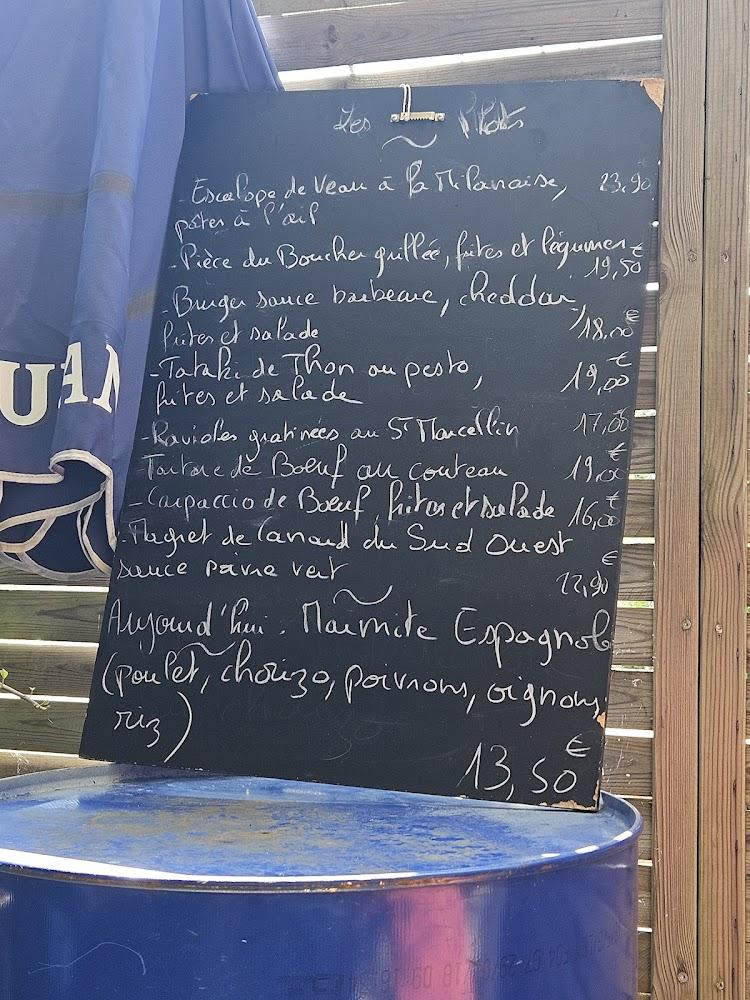 Les Plats
- Escalope de Veau à la Milanaise, 23,90 €
pâtes à l'ail
- Pièce du Boucher grillée, frites et légumes €
19,50
- Burger sauce barbecue, cheddar,
frites et salade 18,00 €
- Tataki de Thon au pesto, €
frites et salade 19,00
- Ravioles gratinées au St Marcellin 17,00
- Tartare de Boeuf au couteau 19,00 €
- Carpaccio de Boeuf, frites et salade 16,00 €
- Magret de Canard du Sud Ouest
sauce poivre vert 22,90 €
Aujourd'hui. Marmite Espagnole
(poulet, chorizo, poivrons, oignons,
riz)
13,50 €
UAN